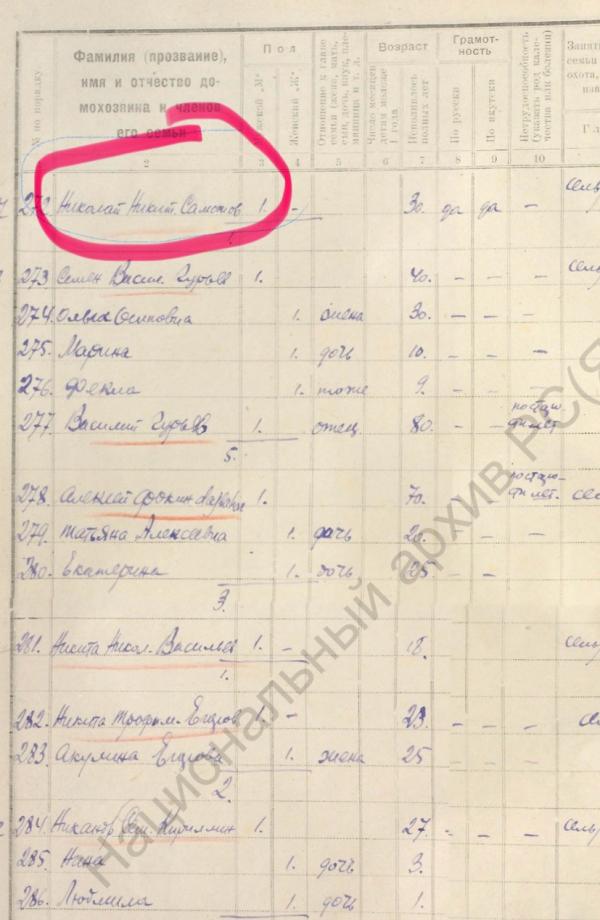 № по порядку
Фамилия (прозвание), имя и отчество домохозяина и членов его семьи
Пол
Мужской „М"
Женский „Ж"
Отношение к главе семьи (жена, мать, сын, дочь, внук, племянница и т. д.
Возраст
Число месяцев детям моложе 1 года
Исполнилось полных лет
Грамотность
По русски
По якутски
Нетрудоспособность (указать род калечества или болезни)
2 3 4 5 6 7 8 9 10
272 Николай Никит. 1. - 30. да да -
1.
273 Семен Васил. Гурьев 1. 40. - - -
274. Ольга Осиповна 1. жена 30. - - -
275. Марина 1. дочь 10. - - -
276. Фекла 1. тоже 9. - - -
277. Василий Гурьев 1. отец 80. -
5.
278. Алексей 1. 70. -
279. Татьяна Алексеевна 1. дочь 20. - - -
280. Екатерина 1. дочь 25 - -
3.
281. Никита Никол. Васильев 1. - 18.
1.
282. Никита Трофим. Егоров 1. - 23. - - -
283. Акулина Егорова 1. жена 25 - - -
2.
284. Сем. Кириллин 1. 27. - - -
285. 1. дочь 3.
286. Людмила 1. дочь 1.
Национальный архив РС(Я